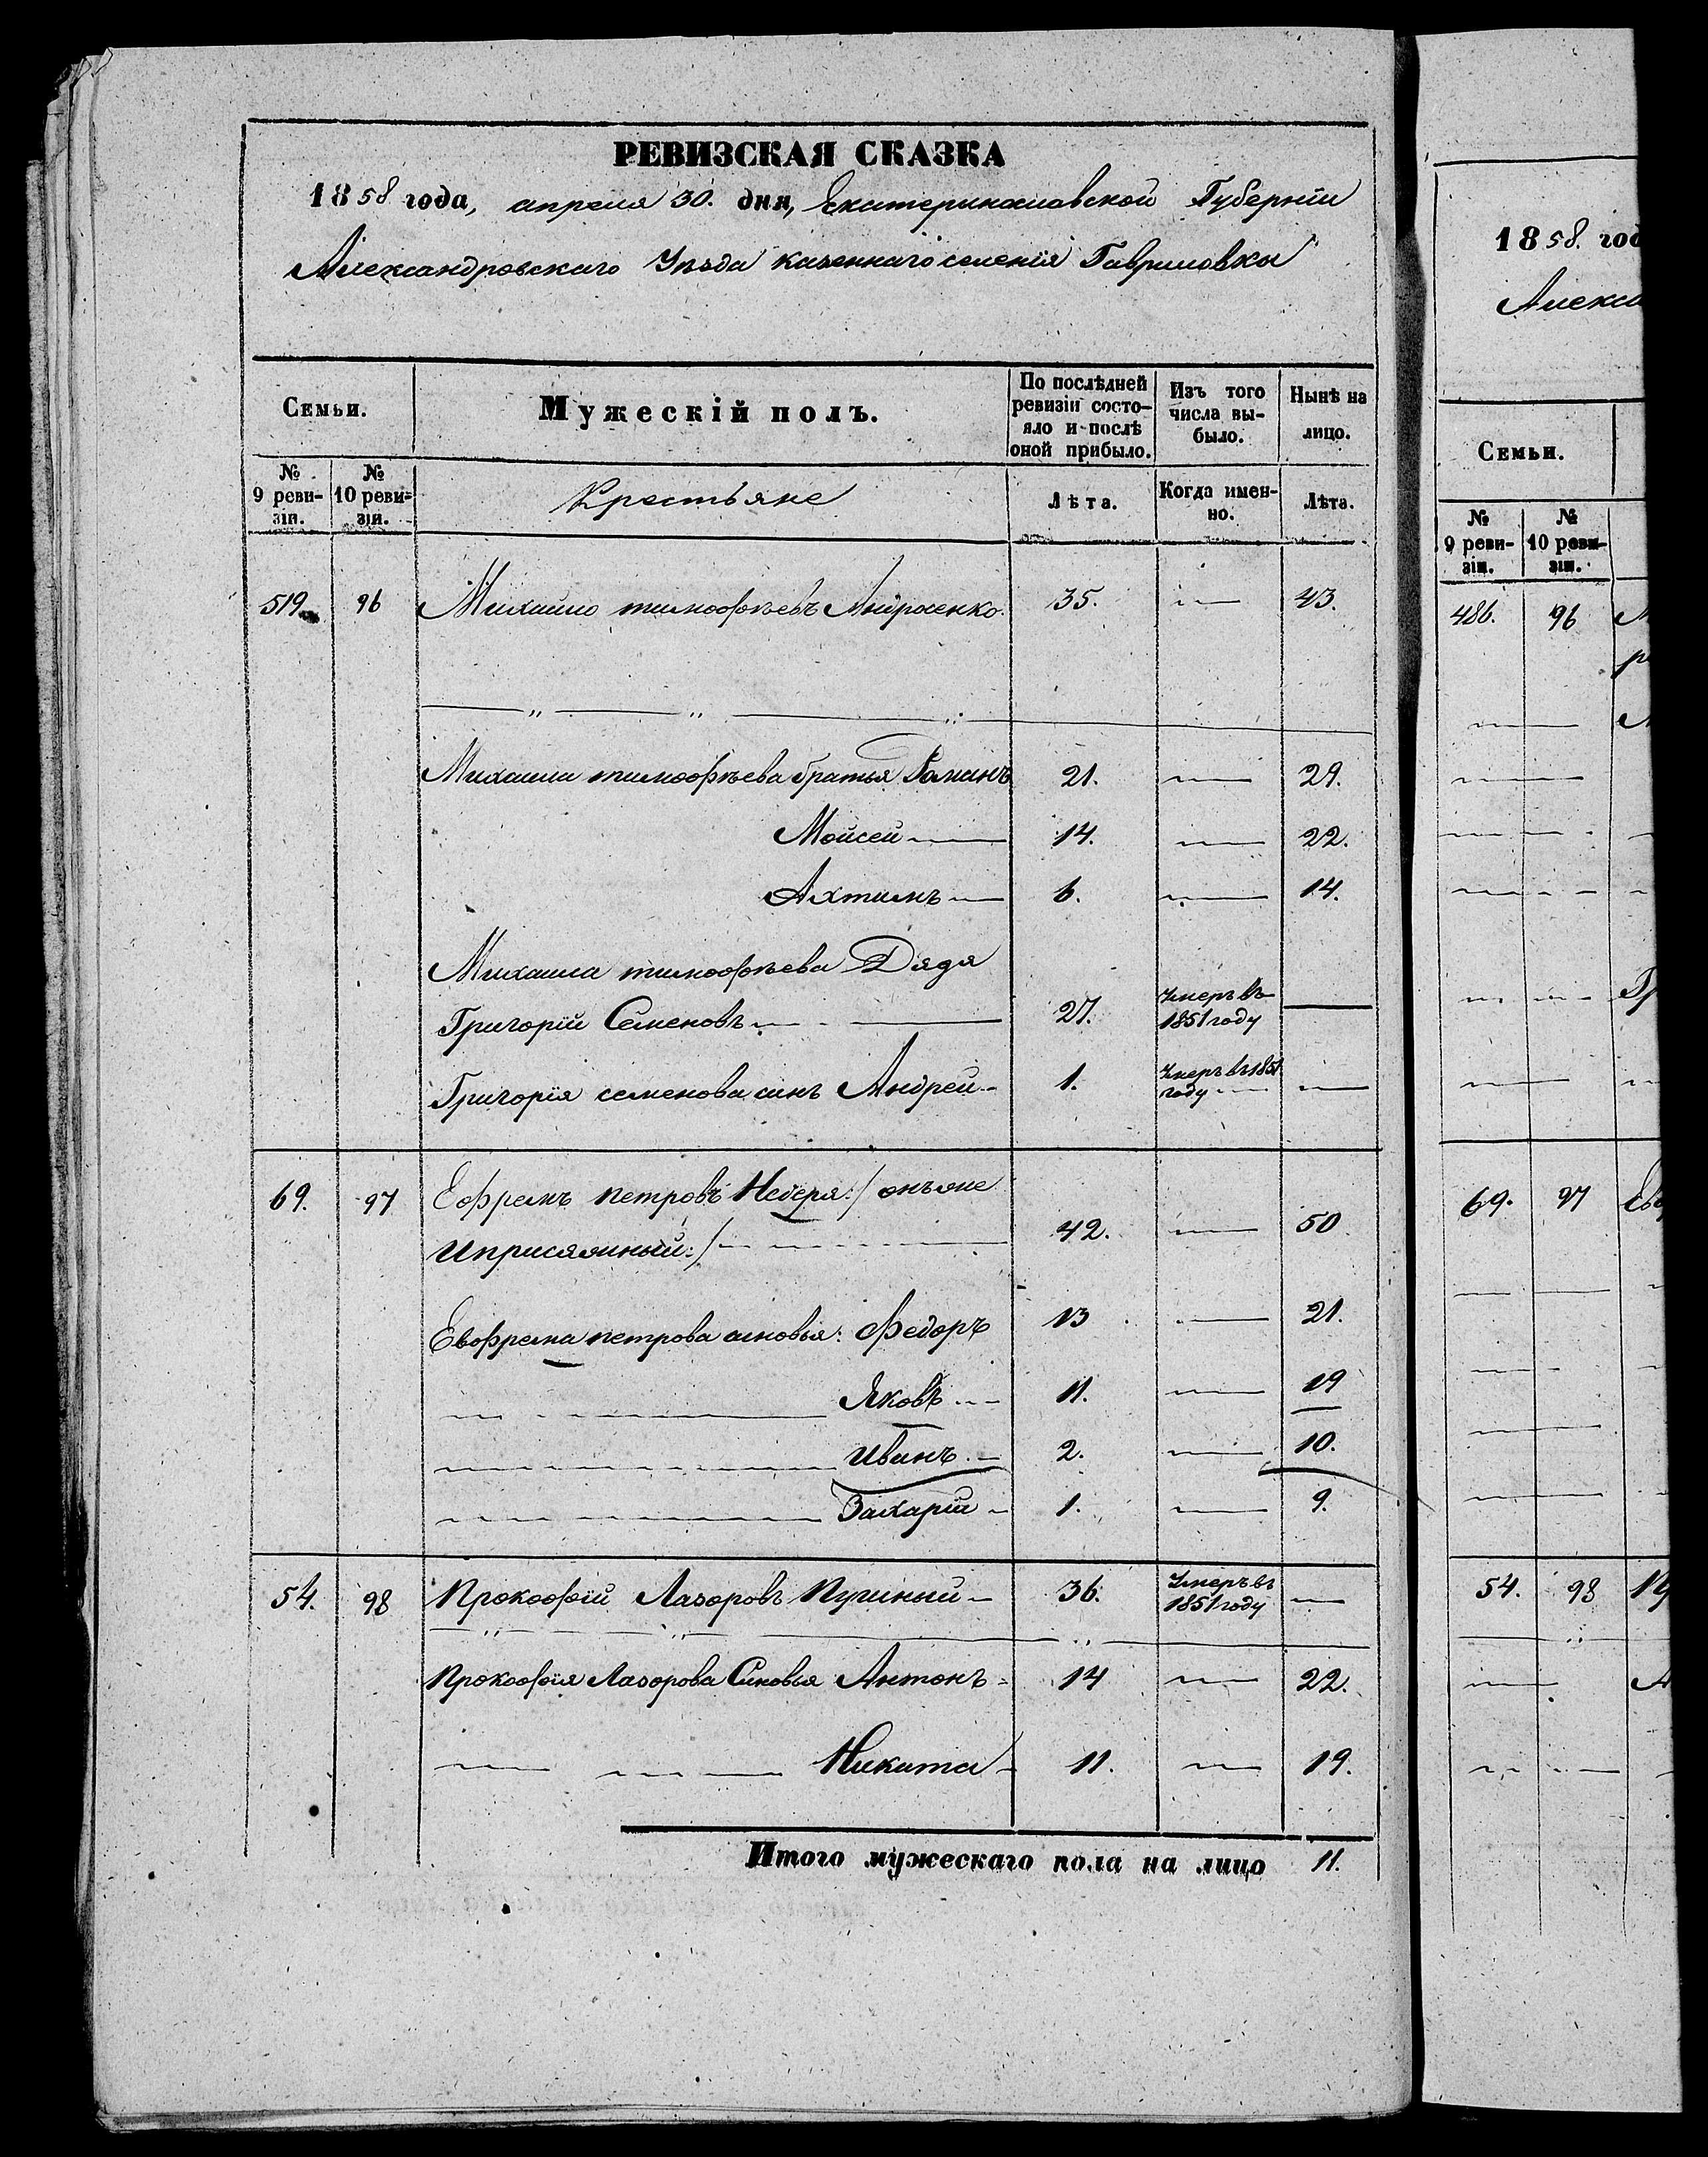 РЕВИЗСКАЯ СКАЗКА
1858 года, апреля 30. дня, Екатеринославской Губерніи
Александровскаго Уѣзда казеннаго селенія Гавриловки
Семьи.
Мужескій полъ.
По послѣдней
ревизіи состо-
яло и послѣ
оной прибыло.
Изъ того
числа вы-
было.
Нынѣ на
лицо.
№
9 реви-
зіи.
№
10 реви-
зіи.
Крестьяне
Лѣта.
Когда имен-
но.
Лѣта.
519. 96 Михайло тимофѣевъ Андросенко. 35. 43.
Михаила тимофѣева братья Романъ 21. 29.
Мойсей 14. 22.
Ахтимъ 6. 14.
Михаила тимофѣева Дядя
Григорій Семеновъ 27. Умеръ въ 1851 году
Григорія семенова синъ Андрей 1. Умеръ въ 1851 году
69. 97 Ефремъ петровъ Небера:/ онъ же
Априсяжный:/ 42. 50
Евфрема петрова сыновья: Федоръ 13 21.
Яковъ 11. 19
Иванъ 2. 10.
Захарій 1. 9.
54. 98 Прокофій Лазоровъ 36. Умеръ въ 1851 году
Прокофія Лазорова Синовья Антонъ 14 22.
Никита 11. 19.
Итого мужескаго пола на лицо 11.
1858. год
Алекса
Семьи.
№
9 реви-
зіи.
№
10 реви-
зіи.
486. 96
69. 97
54. 98